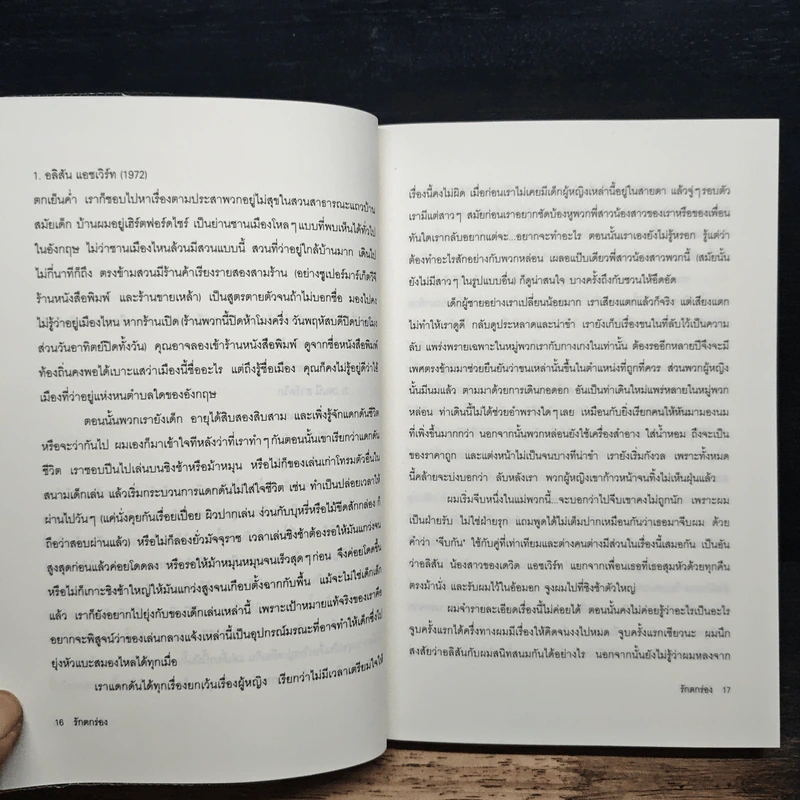 1. อลิสัน แอชเวิร์ท (1972)
ตกเย็นค่ำ เราก็ชอบไปหาเรื่องตามประสาพวกอยู่ไม่สุขในสวนสาธารณะแถวบ้าน
สมัยเด็ก บ้านผมอยู่เฮิร์ตฟอร์ดไชร์ เป็นย่านชานเมืองโหลๆ แบบที่พบเห็นได้ทั่วไป
ในอังกฤษ ไม่ว่าชานเมืองไหนล้วนมีสวนแบบนี้ สวนที่ว่าอยู่ใกล้บ้านมาก เดินไป
ไม่กี่นาทีก็ถึง ตรงข้ามสวนมีร้านค้าเรียงรายสองสามร้าน (อย่างซูเปอร์มาร์เก็ตวีจี
ร้านหนังสือพิมพ์ และร้านขายเหล้า) เป็นสูตรตายตัวจนถ้าไม่บอกชื่อ มองไปคง
ไม่รู้ว่าอยู่เมืองไหน หากร้านเปิด (ร้านพวกนี้ปิดห้าโมงครึ่ง วันพฤหัสบดีปิดบ่ายโมง
ส่วนวันอาทิตย์ปิดทั้งวัน) คุณอาจลองเข้าร้านหนังสือพิมพ์ ดูจากชื่อหนังสือพิมพ์
ท้องถิ่นคงพอได้เบาะแสว่าเมืองนี้ชื่ออะไร แต่ถึงรู้ชื่อเมือง คุณก็คงไม่รู้อยู่ดีว่าไอ้
เมืองที่ว่าอยู่แห่งหนตำบลใดของอังกฤษ
ตอนนั้นพวกเรายังเด็ก อายุได้สิบสองสิบสาม และเพิ่งรู้จักแดกดันชีวิต
หรือจะว่ากันไป ผมเองก็มาเข้าใจทีหลังว่าที่เราทำๆ กันตอนนั้นเขาเรียกว่าแดกดัน
ชีวิต เราชอบปีนไปเล่นบนชิงช้าหรือม้าหมุน หรือไม่ก็ของเล่นเก่าโทรมตัวอื่นใน
สนามเด็กเล่น แล้วเริ่มกระบวนการแดกดันไม่ใส่ใจชีวิต เช่น ทำเป็นปล่อยเวลาให้
ผ่านไปวันๆ (แค่นั่งคุยกันเรื่อยเปื่อย ผิวปากเล่น ง่วนกับบุหรี่หรือไม้ขีดสักกล่อง ก็
ถือว่าสอบผ่านแล้ว) หรือไม่ก็ลองยั่วมัจจุราช เวลาเล่นชิงช้าต้องรอให้มันแกว่งจน
สูงสุดก่อนแล้วค่อยโดดลง หรือรอให้ม้าหมุนหมุนจนเร็วสุดๆ ก่อน จึงค่อยโดดขึ้น
หรือไม่ก็เกาะชิงช้าใหญ่ให้มันแกว่งสูงจนเกือบตั้งฉากกับพื้น แม้จะไม่ใช่เด็กเล็ก
แล้ว เราก็ยังอยากไปยุ่งกับของเด็กเล่นเหล่านี้ เพราะเป้าหมายแท้จริงของเราคือ
อยากจะพิสูจน์ว่าของเล่นกลางแจ้งเหล่านี้เป็นอุปกรณ์มรณะที่อาจทำให้เด็กซึ่งไป
ยุ่งหัวแบะสมองไหลได้ทุกเมื่อ
เราแดกดันได้ทุกเรื่องยกเว้นเรื่องผู้หญิง เรียกว่าไม่มีเวลาเตรียมใจให้
16 รักตกร่อง
เรื่องนี้คงไม่ผิด เมื่อก่อนเราไม่เคยมีเด็กผู้หญิงเหล่านี้อยู่ในสายตา แล้วจู่ๆ รอบตัว
เรามีแต่สาวๆ สมัยก่อนเราอยากซัดบ้องหูพวกพี่สาวน้องสาวของเราหรือของเพื่อน
ทันใดเรากลับอยากแต่จะ...อยากจะทำอะไร ตอนนั้นเราเองยังไม่รู้หรอก รู้แต่ว่า
ต้องทำอะไรสักอย่างกับพวกหล่อน เผลอแป๊บเดียวพี่สาวน้องสาวพวกนี้ (สมัยนั้น
ยังไม่มีสาวๆ ในรูปแบบอื่น) ก็ดูน่าสนใจ บางครั้งถึงกับชวนให้อึดอัด
เด็กผู้ชายอย่างเราเปลี่ยนน้อยมาก เราเสียงแตกแล้วก็จริง แต่เสียงแตก
ไม่ทำให้เราดูดี กลับดูประหลาดและน่าขำ เรายังเก็บเรื่องขนในที่ลับไว้เป็นความ
ลับ แพร่งพรายเฉพาะในหมู่พวกเรากับกางเกงในเท่านั้น ต้องรออีกหลายปีจึงจะมี
เพศตรงข้ามมาช่วยยืนยันว่าขนเหล่านั้นขึ้นในตำแหน่งที่ถูกที่ควร ส่วนพวกผู้หญิง
นั้นมีนมแล้ว ตามมาด้วยการเดินกอดอก อันเป็นท่าเดินใหม่แพร่หลายในหมู่พวก
หล่อน ท่าเดินนี้ไม่ได้ช่วยอำพรางใดๆ เลย เหมือนกับยิ่งเรียกคนให้หันมามองนม
ที่เพิ่งขึ้นมากกว่า นอกจากนั้นพวกหล่อนยังใช้เครื่องสำอาง ใส่น้ำหอม ถึงจะเป็น
ของราคาถูก และแต่งหน้าไม่เป็นจนบางทีน่าขำ เรายังเริ่มกังวล เพราะทั้งหมด
นี้คล้ายจะบ่งบอกว่า ลับหลังเรา พวกผู้หญิงเขาก้าวหน้าจนทิ้งไม่เห็นฝุ่นแล้ว
ผมเริ่มจีบหนึ่งในแม่พวกนี้...จะบอกว่าไปจีบเขาคงไม่ถูกนัก เพราะผม
เป็นฝ่ายรับ ไม่ใช่ฝ่ายรุก แถมพูดได้ไม่เต็มปากเหมือนกันว่าเธอมาจีบผม ด้วย
คำว่า "จีบกัน" ใช้กับคู่ที่เท่าเทียมและต่างคนต่างมีส่วนในเรื่องนี้เสมอกัน เป็นอัน
ว่าอลิสัน น้องสาวของเดวิด แอชเวิร์ท แยกจากเพื่อนเธอที่เธอสุมหัวด้วยทุกคืน
ตรงม้านั่ง และรับผมไว้ในอ้อมอก จูงผมไปที่ชิงช้าตัวใหญ่
ผมจำรายละเอียดเรื่องนี้ไม่ค่อยได้ ตอนนั้นคงไม่ค่อยรู้ว่าอะไรเป็นอะไร
จูบครั้งแรกได้ครึ่งทางผมมีเรื่องให้คิดจนงงไปหมด จูบครั้งแรกเชียวนะ ผมนึก
สงสัยว่าอลิสันกับผมสนิทสนมกันได้อย่างไร นอกจากนั้นยังไม่รู้ว่าผมหลงจาก
รักตกร่อง 17